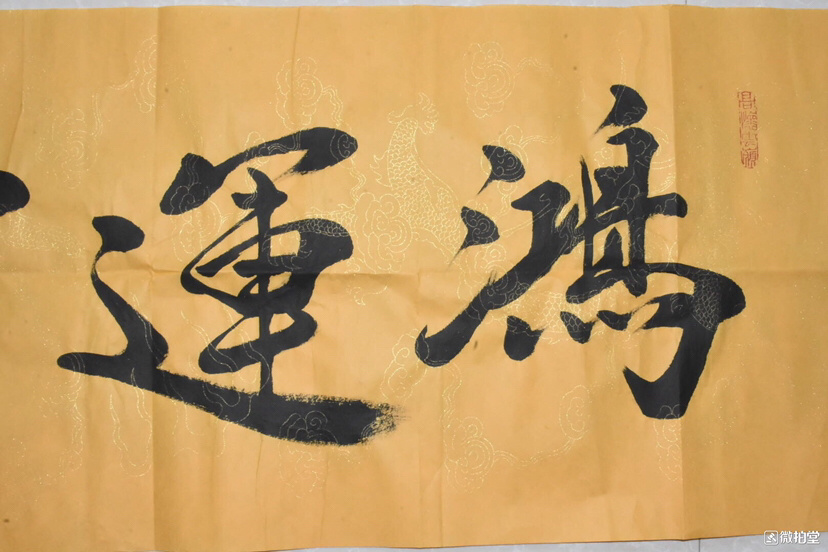 鴻運
微拍堂